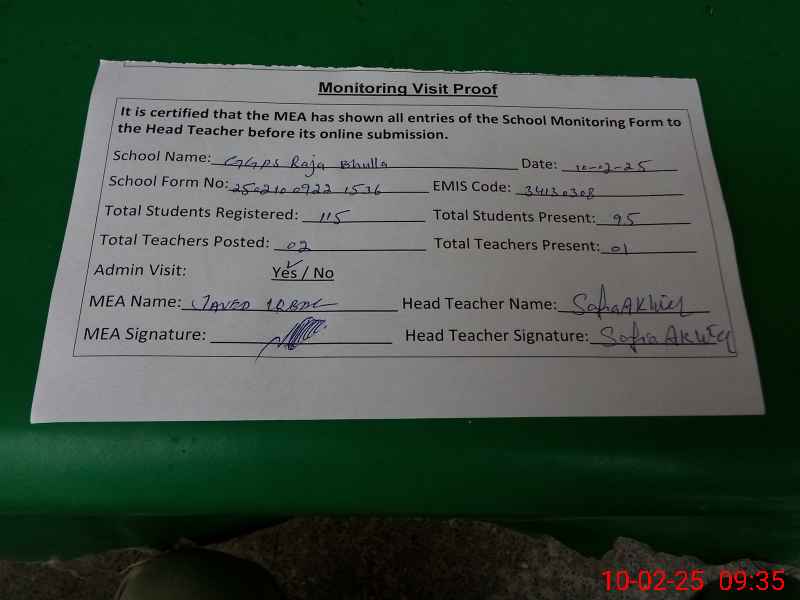 Monitoring Visit Proof
It is certified that the MEA has shown all entries of the School Monitoring Form to
the Head Teacher before its online submission.
School Name: GGPS Raja Bhulla Date: 10-02-25
School Form No: 2502100922 1536 EMIS Code: 34130308
Total Students Registered: 115 Total Students Present: 95
Total Teachers Posted: 02 Total Teachers Present: 01
Admin Visit: Yes / No
MEA Name: JAVED IQBAL Head Teacher Name: Sofia Akhter
MEA Signature: Head Teacher Signature: Sofia Akhter
10-02-25 09:35